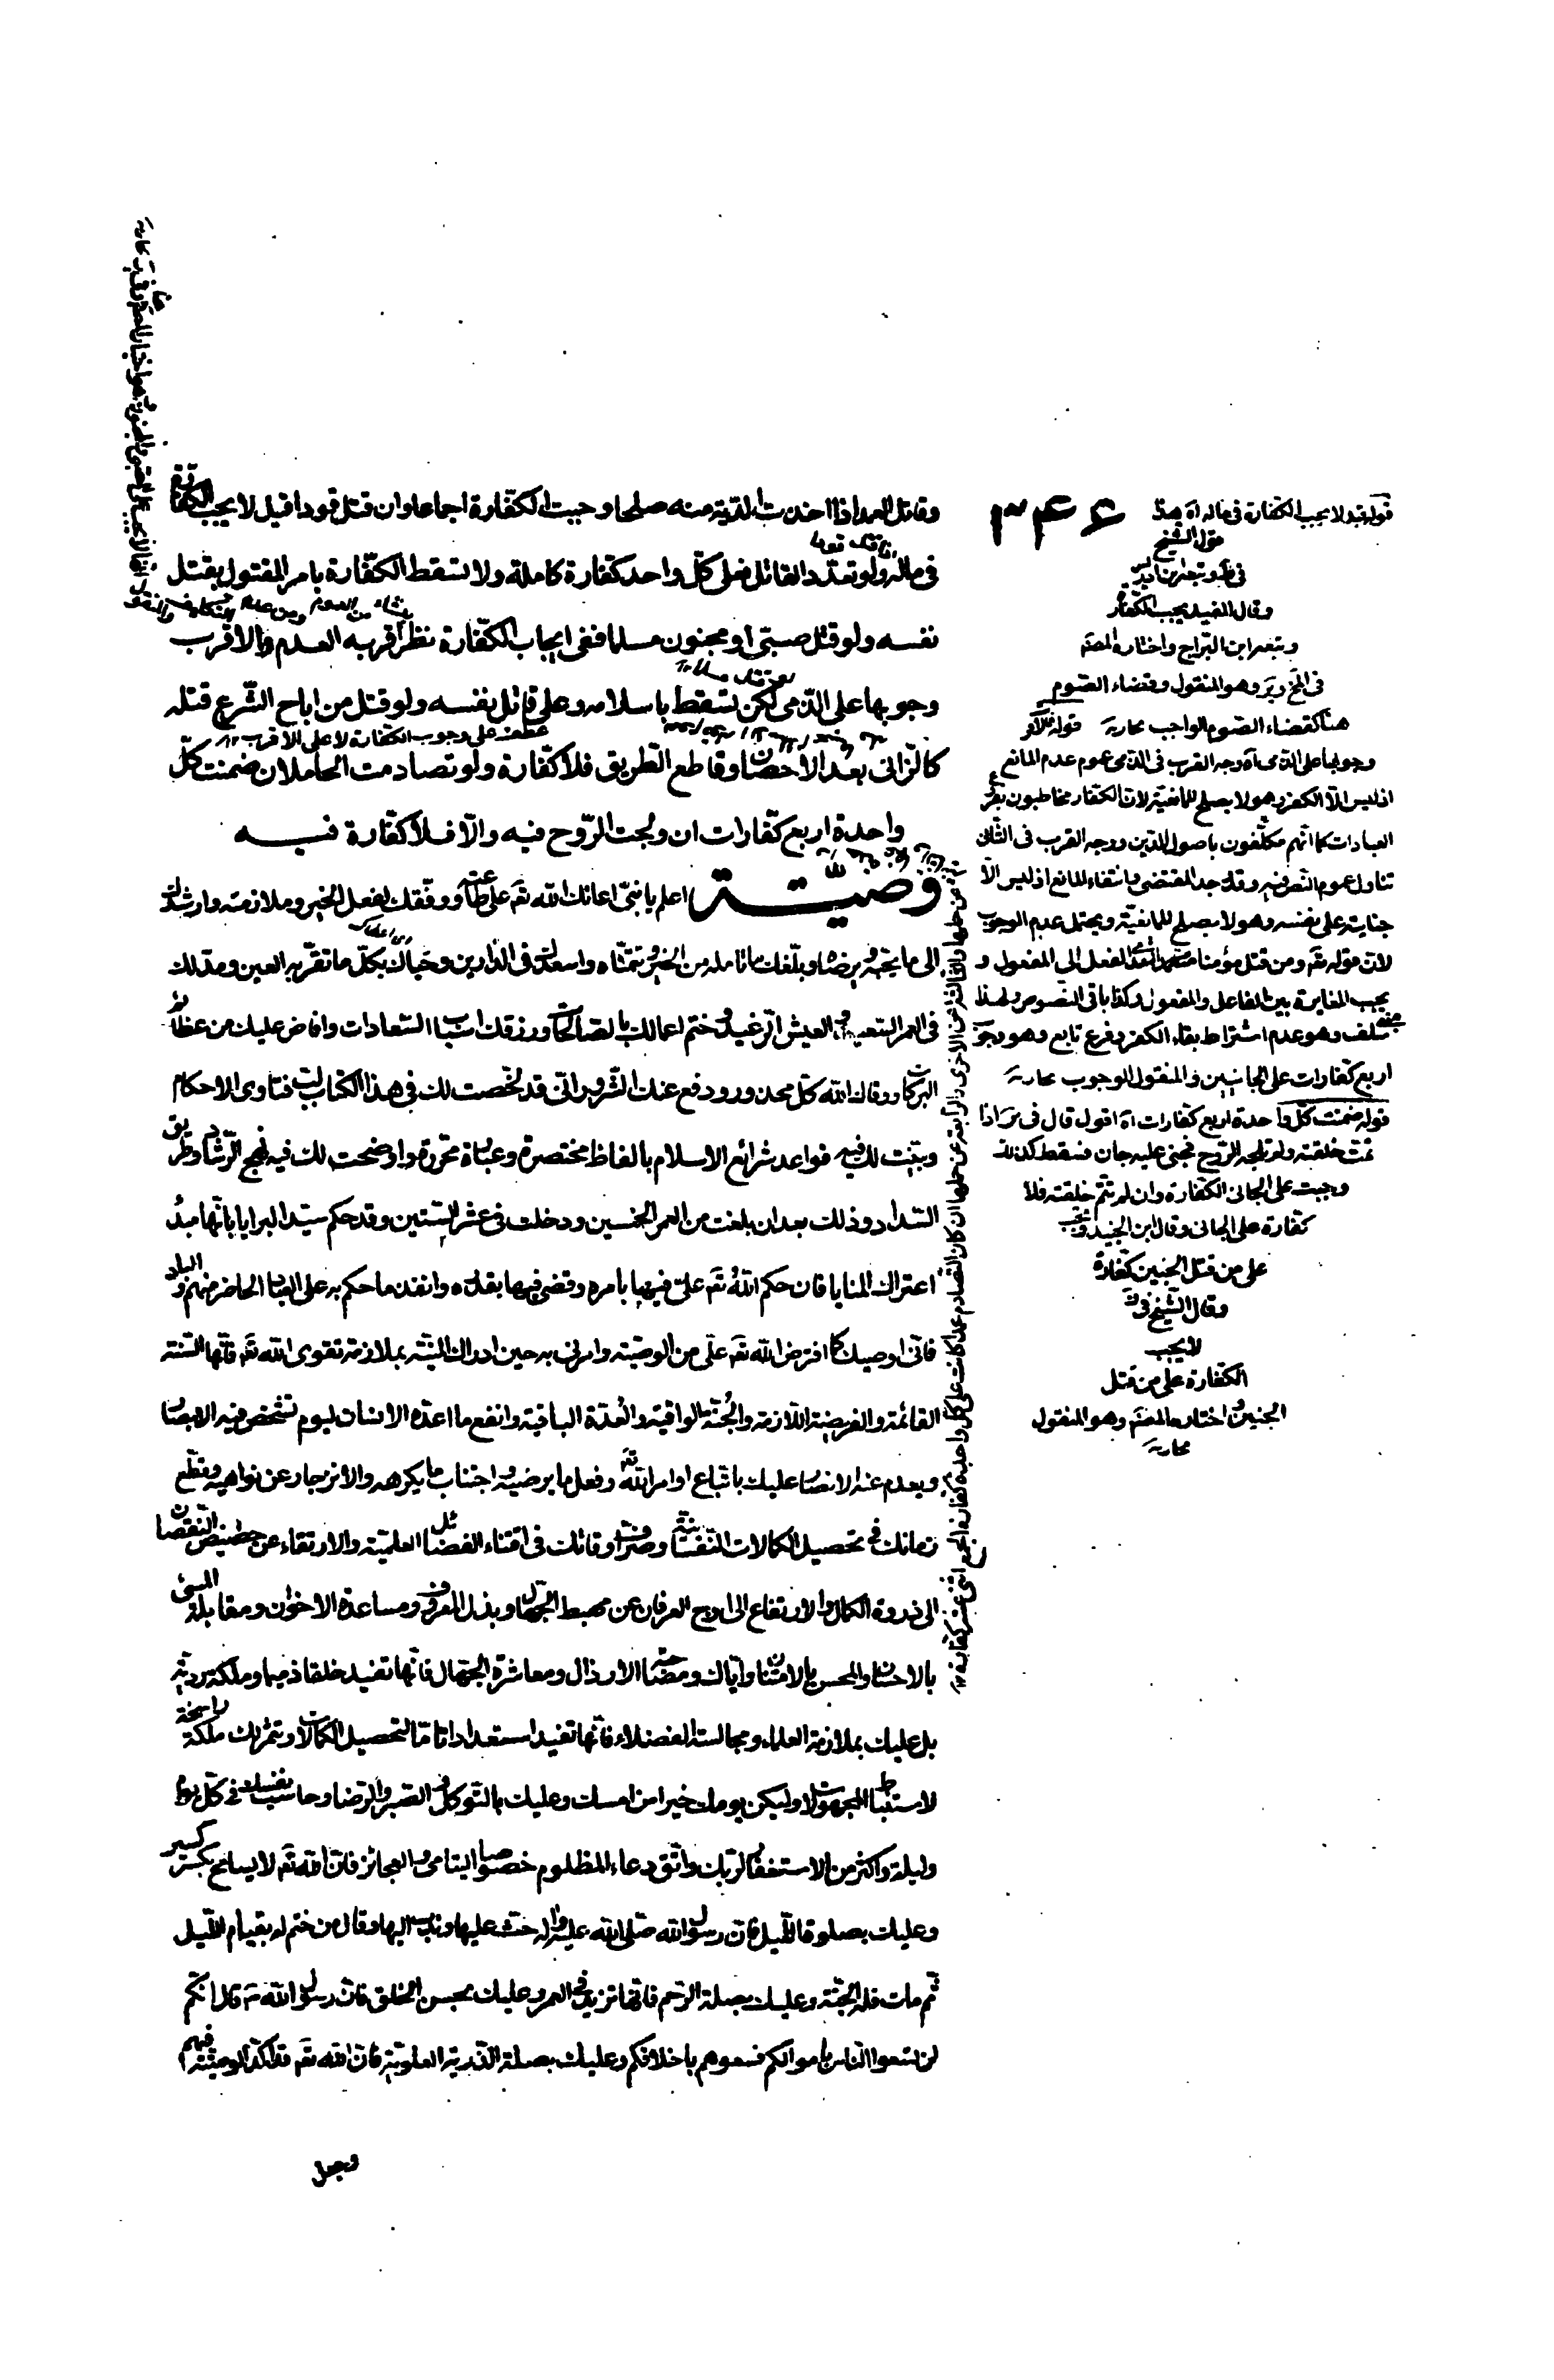 وقاتل العمد اذا اخذت الدية منه صلحا وجبت الكفارة اجماعا وان قتل قودا قيل لا يجب الكفارة
فى ماله ولو تعدد القاتل فعلى كل واحد كفارة كاملة ولا تسقط الكفارة بامر المقتول بقتل
نفسه ولو قتل صبى او مجنون مسلما ففى ايجاب الكفارة نظر اقربه العدم والاقرب
وجوبها على الذمى لكن تسقط باسلامه وعلى قاتل نفسه ولو قتل من اباح الشرع قتله
عطف على وجوب الكفارة لا على الاقرب
كالزانى بعد الاحصان وقاطع الطريق فلا كفارة ولو تصادمت الحاملان ضمنت كل
واحدة اربع كفارات ان ولجت الروح فيه والا فلا كفارة فيه
وصية اعلم يا بنى اعانك الله تع على طاعته ووفقك لفعل الخير وملازمته وارشدك
الى ما يحبه ويرضاه وبلغك ما تامله من الخير وتتمناه واسعدك فى الدارين وحباك بكل ما تقر به العين ومد لك
فى العمر السعيد والعيش الرغيد وختم اعمالك بالصالحات ورزقك اسباب السعادات وافاض عليك من عظائم
البركات ووقاك الله كل محذور ودفع عنك الشرور انى قد لخصت لك فى هذا الكتاب لب فتاوى الاحكام
وبينت لك فيه قواعد شرائع الاسلام بالفاظ مختصرة وعبارة محررة واوضحت لك فيه نهج الرشاد وطريق
السداد وذلك بعد ان بلغت من العمر الخمسين ودخلت فى عشر الستين وقد حكم سيد البرايا بانها مبدأ
اعتراك المنايا فان حكم الله تع على فيها بامره وقضى فيها بقدره وانفذ ما حكم به على العباد الحاضر منهم والباد
فانى اوصيك كما افترض الله تع على من الوصية وامرنى به حين ادراك المنية بملازمة تقوى الله تع فانها السنة
القائمة والفريضة اللازمة والجنة الواقية والعدة الباقية وانفع ما اعده الانسان ليوم تشخص فيه الابصار
ويعدم عنه الانصار عليك باتباع اوامر الله تع وفعل ما يرضيه واجتناب ما يكرهه والانزجار عن نواهيه وقطع
زمانك فى تحصيل الكمالات النفسانية وصرف اوقاتك فى اقتناء الفضائل العلمية والارتقاء عن حضيض النقصان
الى ذروة الكمال والارتفاع الى اوج العرفان عن مهبط الجهال وبذل المعروف ومساعدة الاخوان ومقابلة المسئ
بالاحسان والمحسن بالامتنان واياك ومصاحبة الارذال ومعاشرة الجهال فانها تفيد خلقا ذميما وملكة ردية
بل عليك بملازمة العلماء ومجالسة الفضلاء فانها تفيد استعدادا تاما لتحصيل الكمالات وتثمر لك ملكة راسخة
لاستنباط المجهولات وليكن يومك خيرا من امسك وعليك بالتوكل والصبر والرضا وحاسب نفسك فى كل يوم
وليلة واكثر من الاستغفار لربك واتق دعاء المظلوم خصوصا اليتامى والعجائز فان الله تع لا يسامح بكسر كسير
وعليك بصلوة الليل فان رسول الله صلى الله عليه واله حث عليها وندب اليها وقال من ختم له بقيام الليل
ثم مات فله الجنة وعليك بصلة الرحم فانها تزيد فى العمر وعليك بحسن الخلق فان رسول الله ص قال انكم
لن تسعوا الناس باموالكم فسعوهم باخلاقكم وعليك بصلة الذرية العلوية فان الله تع قد اكد الوصية فيهم
وجعل
٣٤٦
قوله قيل لا يجب الكفارة فى ماله اه هذا
قول الشيخ
فى ط وتبعه ابن ادريس
وقال المفيد يجب الكفارة
وتبعه ابن البراج واختاره المصنف
وهو المنقول وقضاء الصوم
هنا كقضاء الصوم الواجب
وجوبها على الذمى اه وجه القرب فى الذمى عموم عدم المانع
اذ ليس الا الكفر وهو لا يصلح للمانعية لان الكفار مخاطبون بفروع
العبادات كما انهم مكلفون باصول الدين ووجه القرب فى الثانى
تناول عموم النص فيه وقد وجد المقتضى وانتفاء المانع اذ ليس الا
جنايته على نفسه وهو لا يصلح للمانعية ويحتمل عدم الوجوب
لان قوله تع ومن قتل مؤمنا الفعل الى المفعول و
يجب المغايرة بين الفاعل والمفعول وكذا باقى النصوص ولهذا
سلف وهو عدم اشتراط بقاء الكفر وفرع تابع وهو وجوب
اربع كفارات على الجانبين والمنقول الوجوب
قوله ضمنت كل واحدة اربع كفارات اه اقول قال فى اذا
تمت خلقته ولم تلجه الروح فجنى عليه جان فسقط كذلك
وجبت على الجانى الكفارة وان لم تتم خلقته فلا
كفارة على الجانى وقال ابن الجنيد ويجب
على من قتل الجنين كفارة
وقال الشيخ فى
لا يجب
الكفارة على من قتل
الجنين واختاره المصنف وهو المنقول